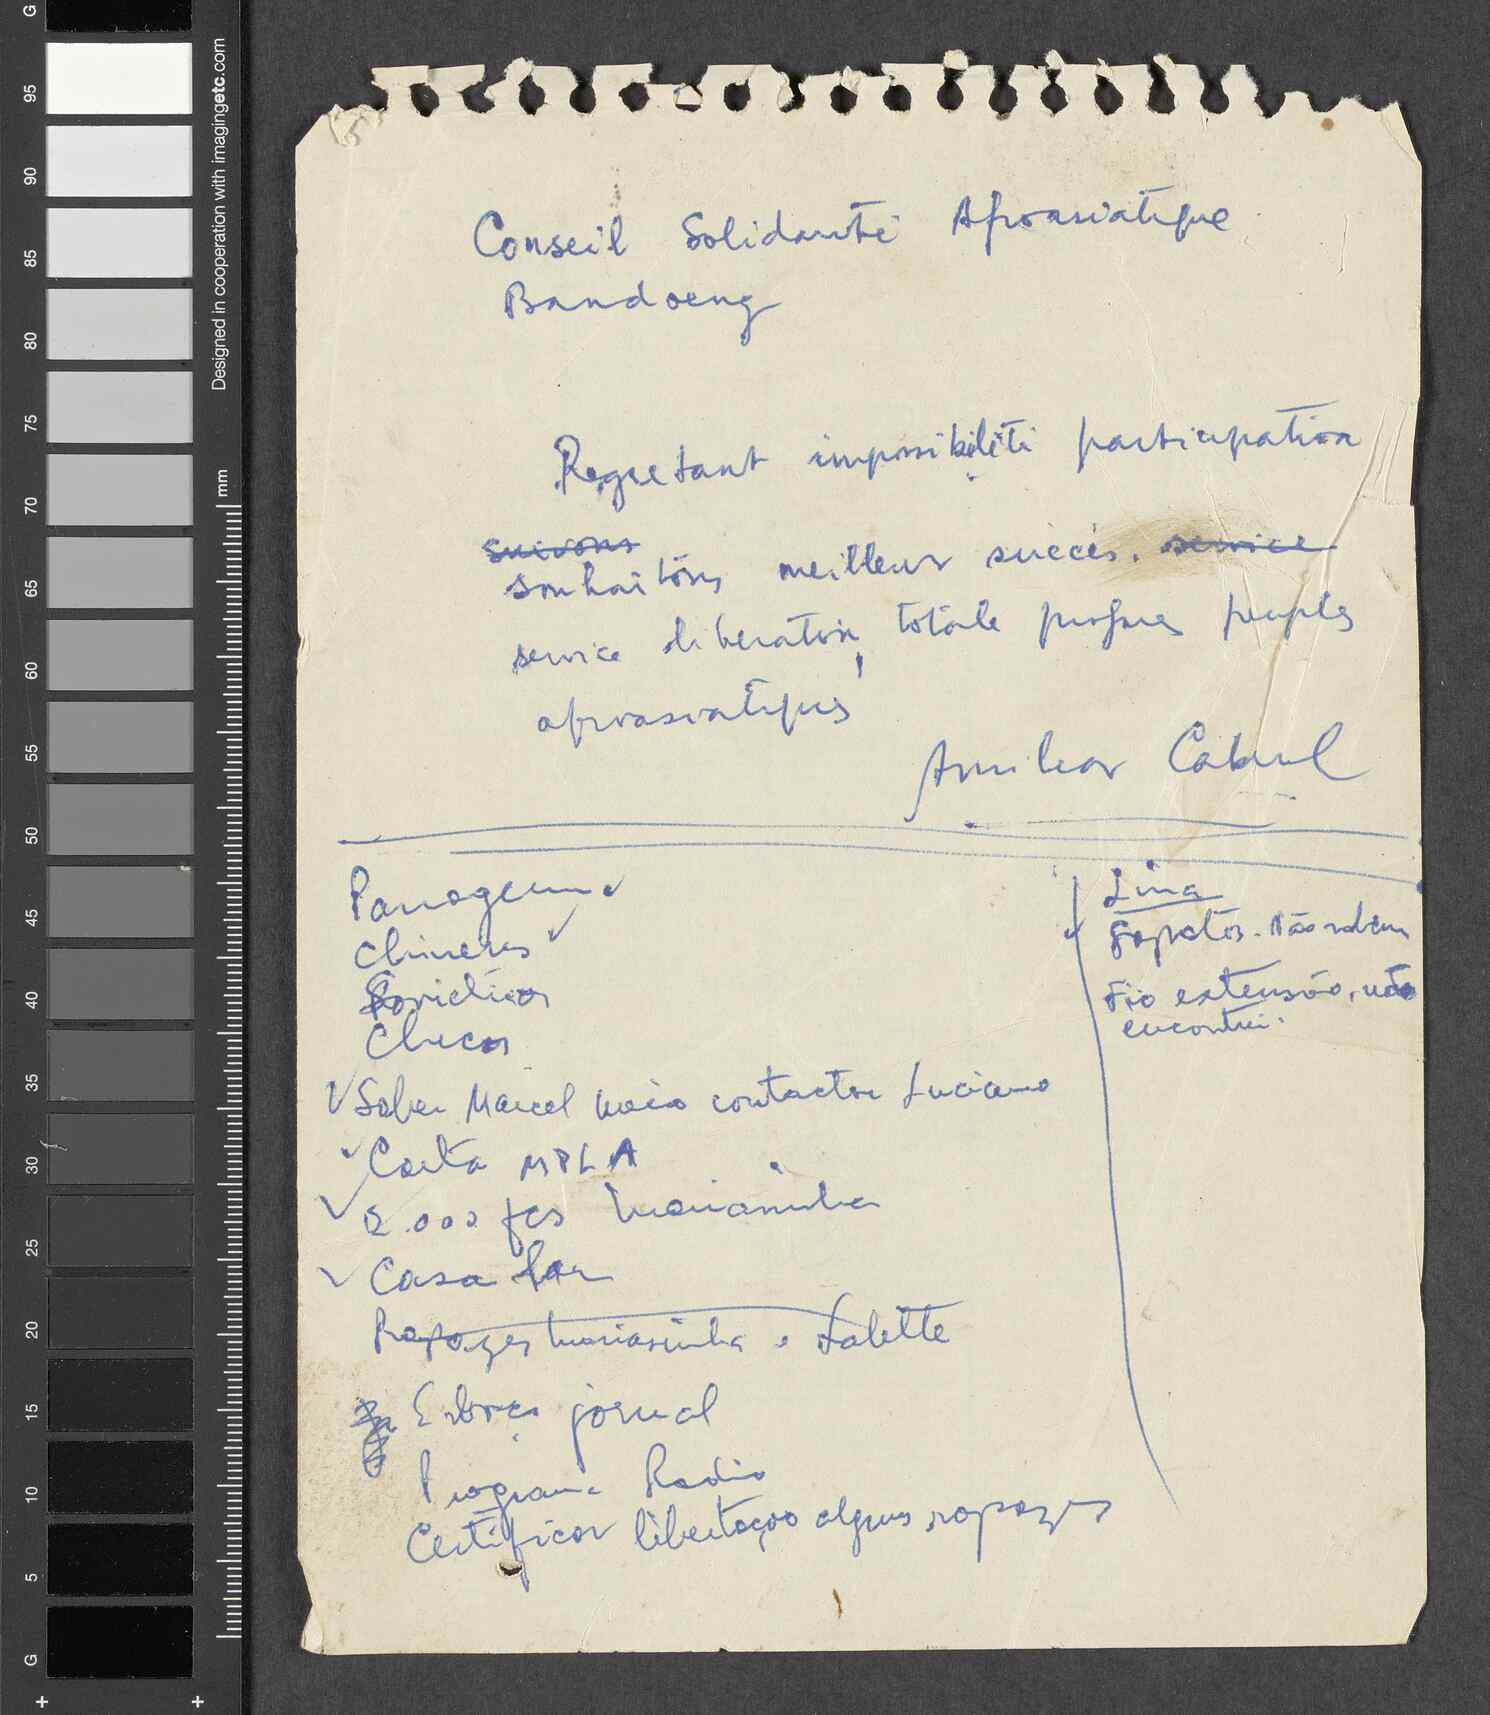 Conseil Solidarité Afroasiatique
Bandoeng
Regretant impossibilité participation
suivons
souhaitons meilleur succès. service
service liberation totale progrès peuples
afroasiatiques
Amilcar Cabral
Chineses
Soviéticos
Checos
Saber Marcel contactar Luciano
Carta MPLA
2.000 fcs Mariasinha
Casa
Rapazes Mariasinha e Lalette
jornal
Programa Radio
Certificar libertação alguns rapazes
Lina
Sapatos. Não
Fio extensão, não
encontrei.
Designed in cooperation with imagingetc.com
mm
G
95
90
85
80
75
70
65
60
55
50
45
40
35
30
25
20
15
10
5
G